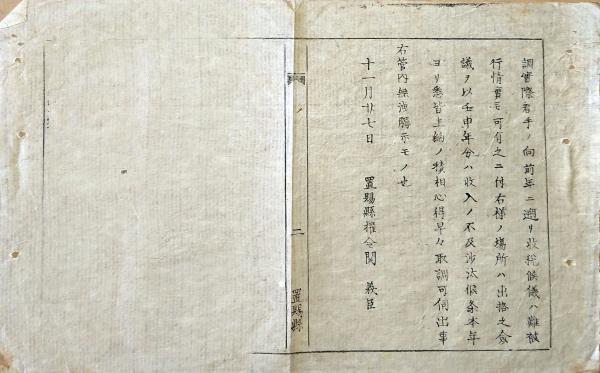 調實際着手ノ向前年ニ遡リ收税候儀ハ難被
行情實モ可有之ニ付右様ノ場所ハ出格之僉
議ヲ以壬申年分ハ收入ノ不及沙汰候条本年
ヨリ悉皆上納ノ積相心得早々取調可伺出事
右管内無洩関示モノ也
十一月廿七日 置賜縣権令関 義臣
二
置賜縣